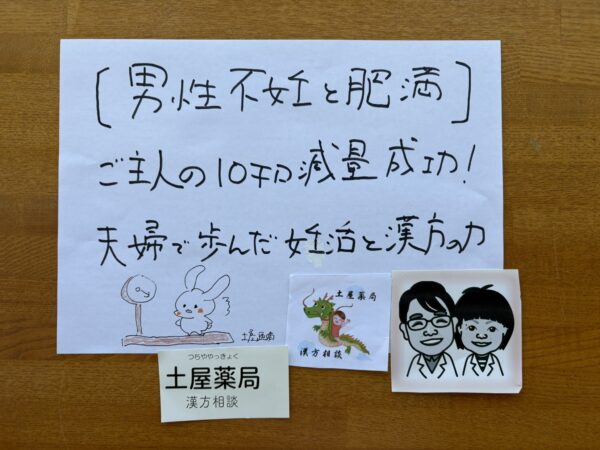 [男性不妊と肥満]
ご主人の10キロ減量成功!
夫婦で歩んだ妊活と漢方の力
土屋薬局
土屋薬局
漢方相談
つちややっきょく
土屋薬局
漢方相談